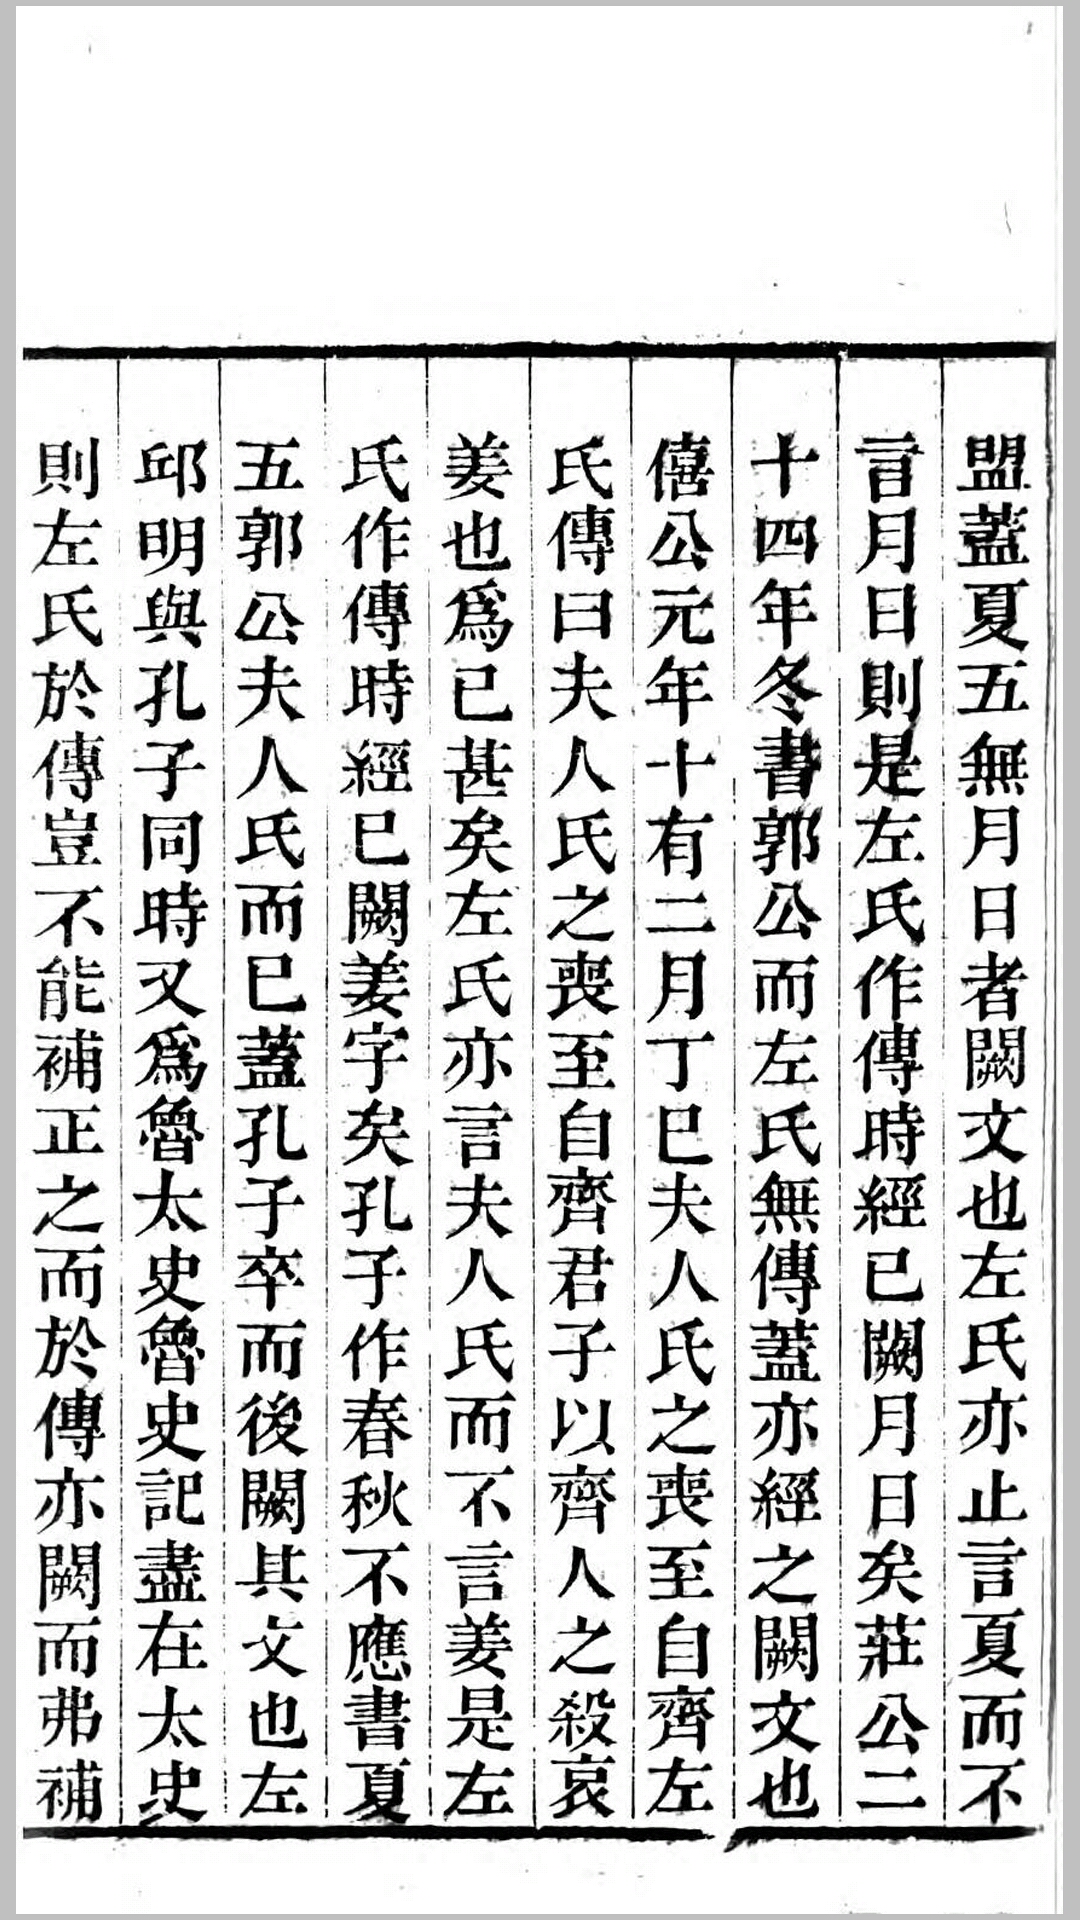 盟蓋夏五無月日者闕文也左氏亦止言夏而不
言月日則是左氏作傳時經已闕月日矣莊公二
十四年冬書郭公而左氏無傳蓋亦經之闕文也
僖公元年十有二月丁巳夫人氏之喪至自齊左
氏傳曰夫人氏之喪至自齊君子以齊人之殺哀
姜也爲已甚矣左氏亦言夫人氏而不言姜是左
氏作傳時經已闕姜字矣孔子作春秋不應書夏
五郭公夫人氏而已蓋孔子卒而後闕其文也左
邱明與孔子同時又爲魯太史魯史記盡在太史
則左氏於傳豈不能補正之而於傳亦闕而弗補